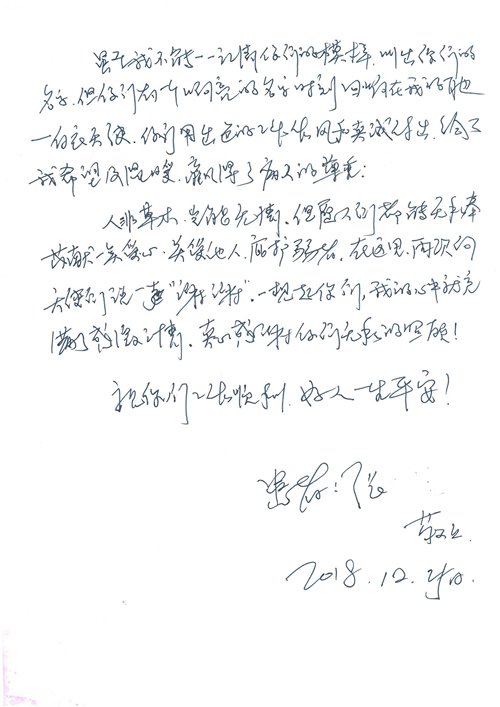 虽然我不能一一记清你们的模样,叫出你们的
名字,但你们有个响亮的名字时刻回响在我的耳边
一白衣天使。你们用出色的工作作风和真诚付出,给了
我希望及温暖,赢得了病人的尊重;
人非草木,岂能无情。但愿人们都能无私奉
献一点爱心,关爱他人,庇护弱者。在这里,再次向
天使们说一声“谢谢,谢谢”。一想起你们,我的心中就充
满了感激之情,真心感谢你们无私的照顾!
祝你们工作顺利,好人一生平安!
患者:张
敬上
2018.12.